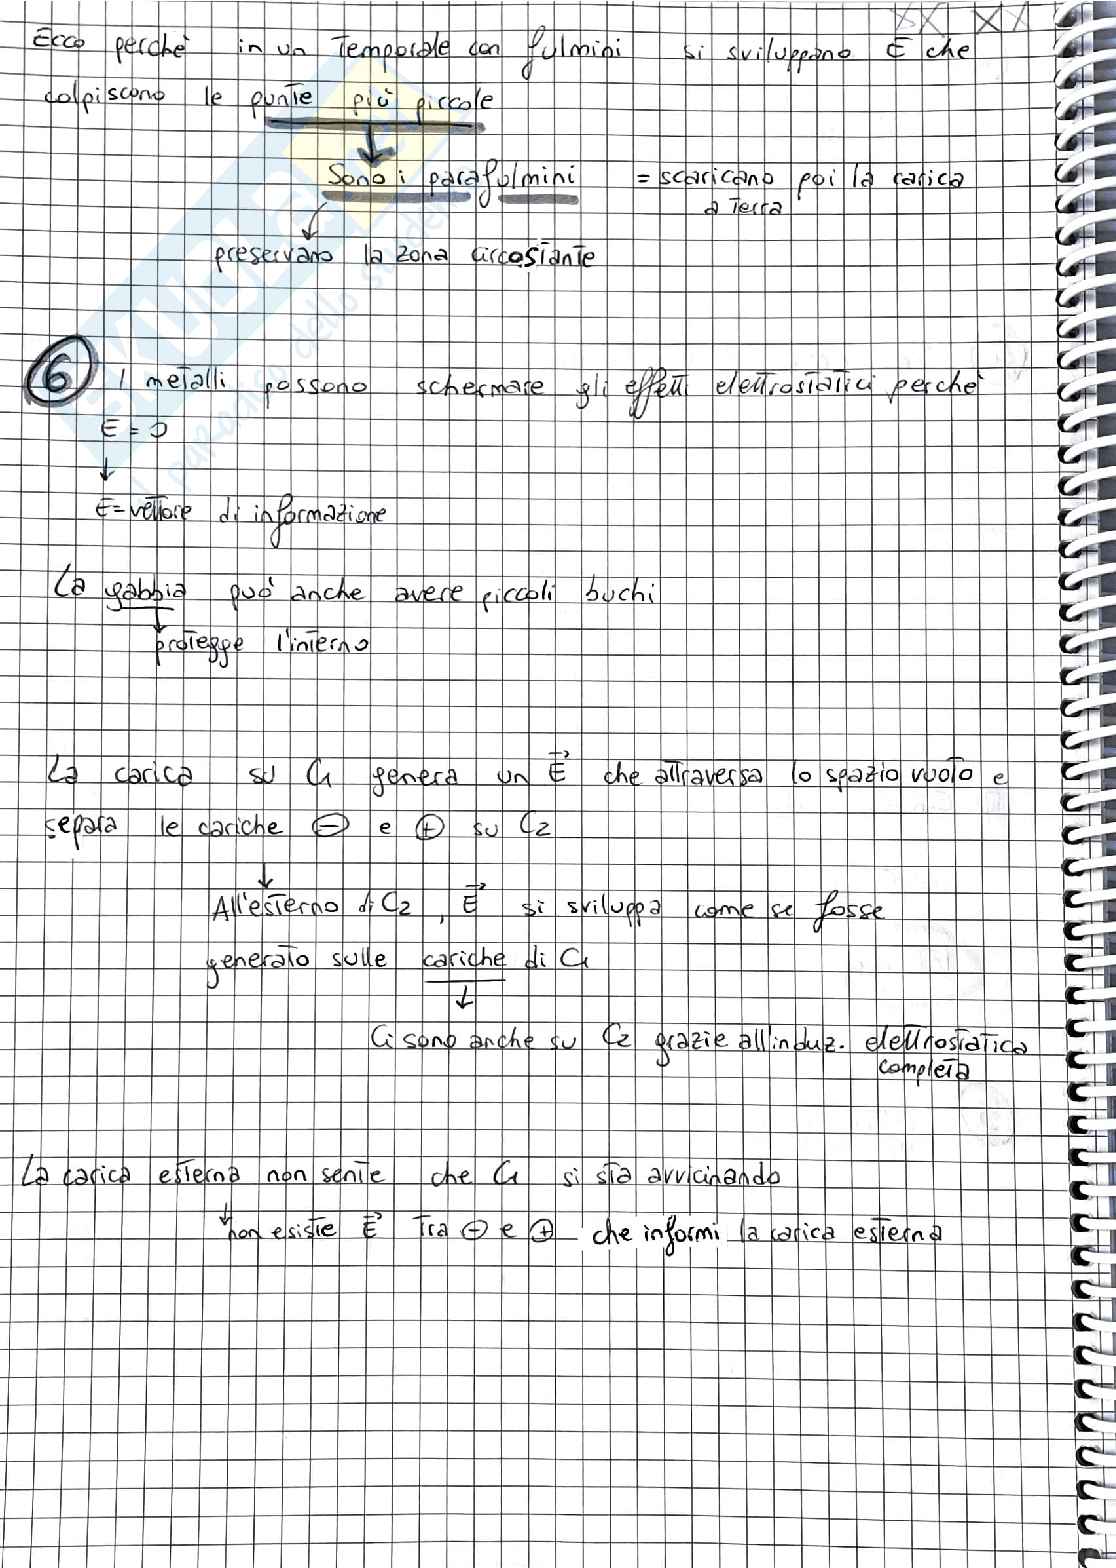 Ecco perchè in un temporale con fulmini si sviluppano E che
colpiscono le punte più piccole
↓
Sono i parafulmini = scaricano poi la carica
a terra
preservano la zona circostante
6 I metalli possono schermare gli effetti elettrostatici perchè
E = 0
↓
E = vettore di informazione
La gabbia può anche avere piccoli buchi
↓
protegge l'interno
La carica su C1 genera un E⃗ che attraversa lo spazio vuoto e
separa le cariche ⊖ e ⊕ su C2
↓
All'esterno di C2, E⃗ si sviluppa come se fosse
generato sulle cariche di C1
↓
Ci sono anche su C2 grazie all'induz. elettrostatica
completa
La carica esterna non sente che C1 si sta avvicinando
↓ non esiste E⃗ tra ⊖ e ⊕ che informi la carica esterna